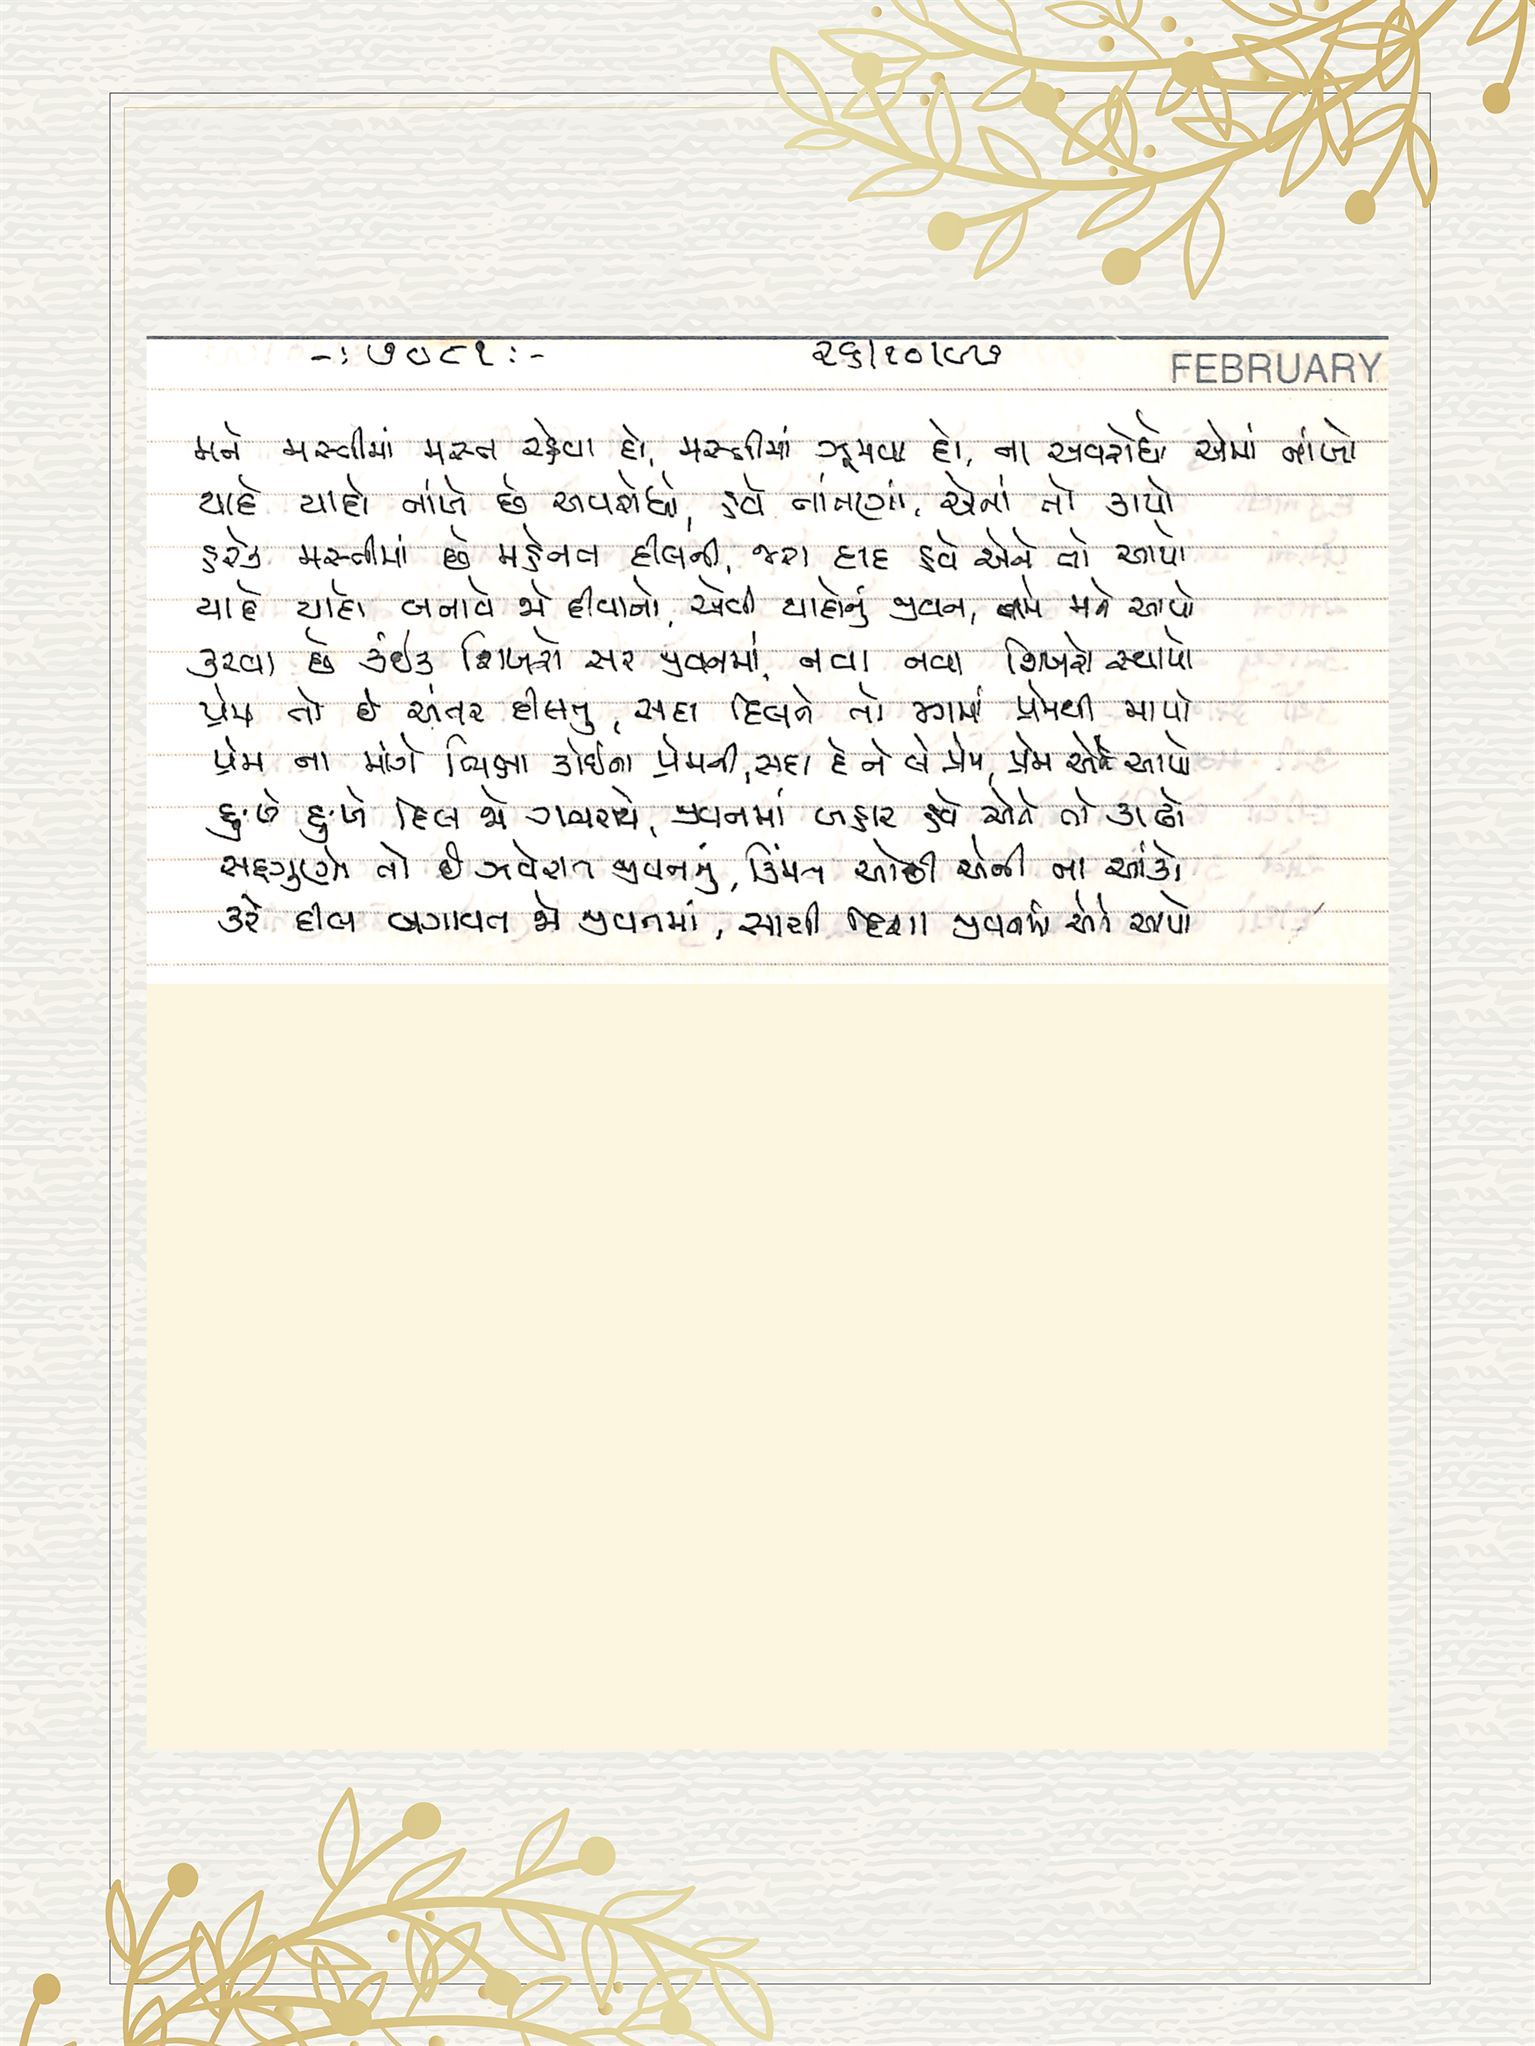 -: ૭૦૮૧ :- ૨૬/૧૦/૯૭ FEBRUARY
મને મસ્તીમાં મસ્ત રહેવા દો, મસ્તીમાં ઝૂમવા દો, ના અવરોધો એમાં નાંખો
યાદે યાદો નાંખે છે અવરોધો, હવે તાંતણાં એનાં તો કાપો
હરેક મસ્તીમાં છે મહેનત દીલની, જરા દાદ હવે એને તો આપો
યાદે યાદો બનાવે જો દીવાનો, એવી યાદોનું જીવન, મને આપો
કરવા છે કંઈક શિખરો સર જીવનમાં, નવા નવા શિખરો સ્થાપો
પ્રેમ તો છે અંતર દીલનુ, સદા દિલને તો જગમાં પ્રેમથી માપો
પ્રેમ ના માંગે ભિક્ષા કોઈના પ્રેમની, સદા દે ને લે પ્રેમ, પ્રેમ એને આપો
દુઃખે દુઃખે દિલ જો ગભરાયે, જીવનમાં બહાર હવે એને તો કાઢો
સદ્દગુણો તો છે ઝવેરાત જીવનનું, કિંમત ઓછી એની ના આંકો
કરે દીલ બગાવત જો જીવનમાં, સાચી દિશા જીવનમાં એને આપો